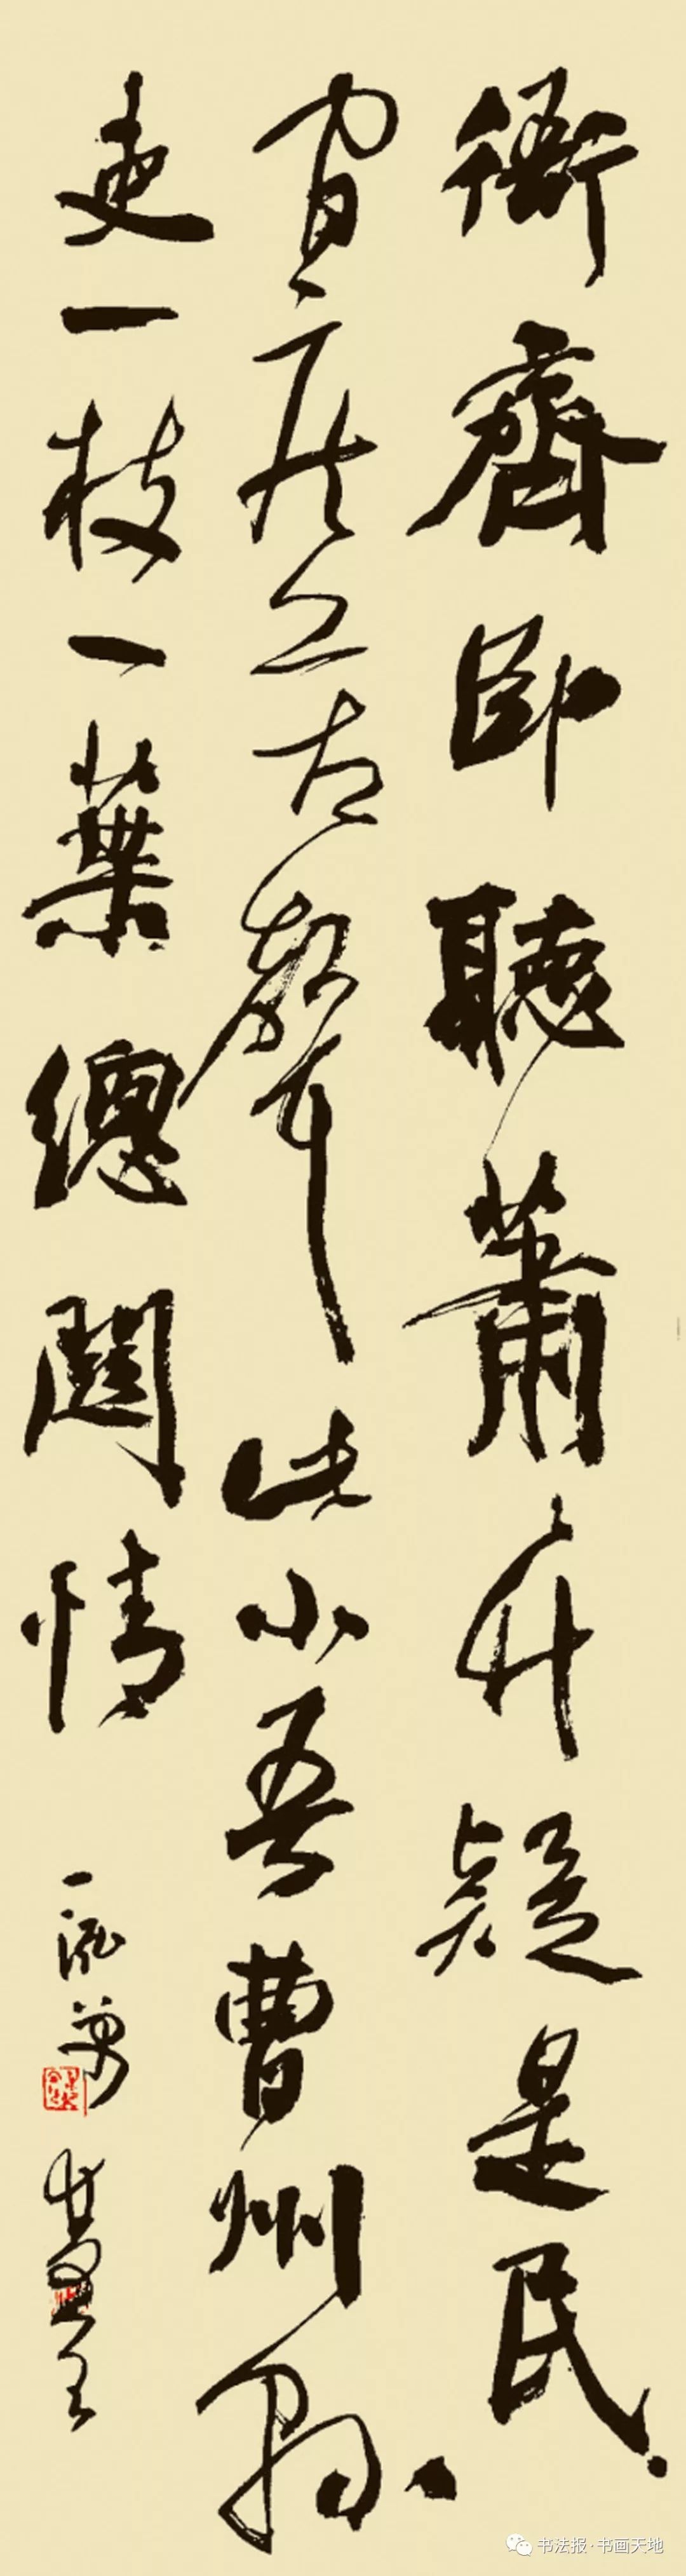 衙齋臥聽蕭々竹疑是民
間疾苦聲些小吾曹州縣
吏一枝一葉總關情
书法报·书画天地